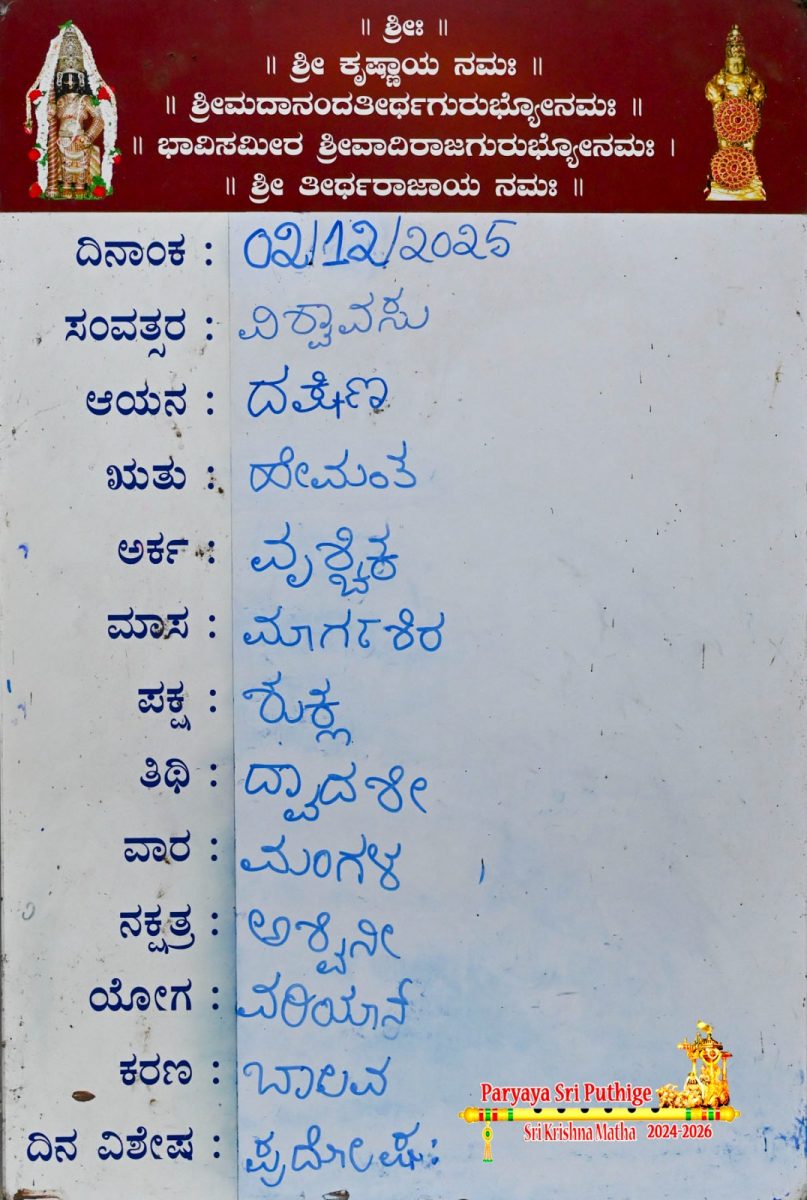 ॥ ಶ್ರೀಃ ॥
॥ ಶ್ರೀ ಕೃಷ್ಣಾಯ ನಮಃ ॥
॥ ಶ್ರೀಮದಾನಂದತೀರ್ಥಗುರುಭ್ಯೋನಮಃ ॥
॥ ಭಾವಿಸಮೀರ ಶ್ರೀವಾದಿರಾಜಗುರುಭ್ಯೋನಮಃ ।
॥ ಶ್ರೀ ತೀರ್ಥರಾಜಾಯ ನಮಃ ॥
ದಿನಾಂಕ : 02/12/2025
ಸಂವತ್ಸರ : ವಿಶ್ವಾವಸು
ಆಯನ : ದಕ್ಷಿಣ
ಋತು : ಹೇಮಂತ
ಅರ್ಕ : ವೃಶ್ಚಿಕ
ಮಾಸ : ಮಾರ್ಗಶಿರ
ಪಕ್ಷ : ಶುಕ್ಲ
ತಿಥಿ : ದ್ವಾದಶೀ
ವಾರ : ಮಂಗಳ
ನಕ್ಷತ್ರ : ಅಶ್ವಿನೀ
ಯೋಗ : ವರಿಯಾನ್
ಕರಣ : ಬಾಲವ
ದಿನ ವಿಶೇಷ : ಪ್ರದೋಷಃ
Paryaya Sri Puthige
Sri Krishna Matha 2024-2026